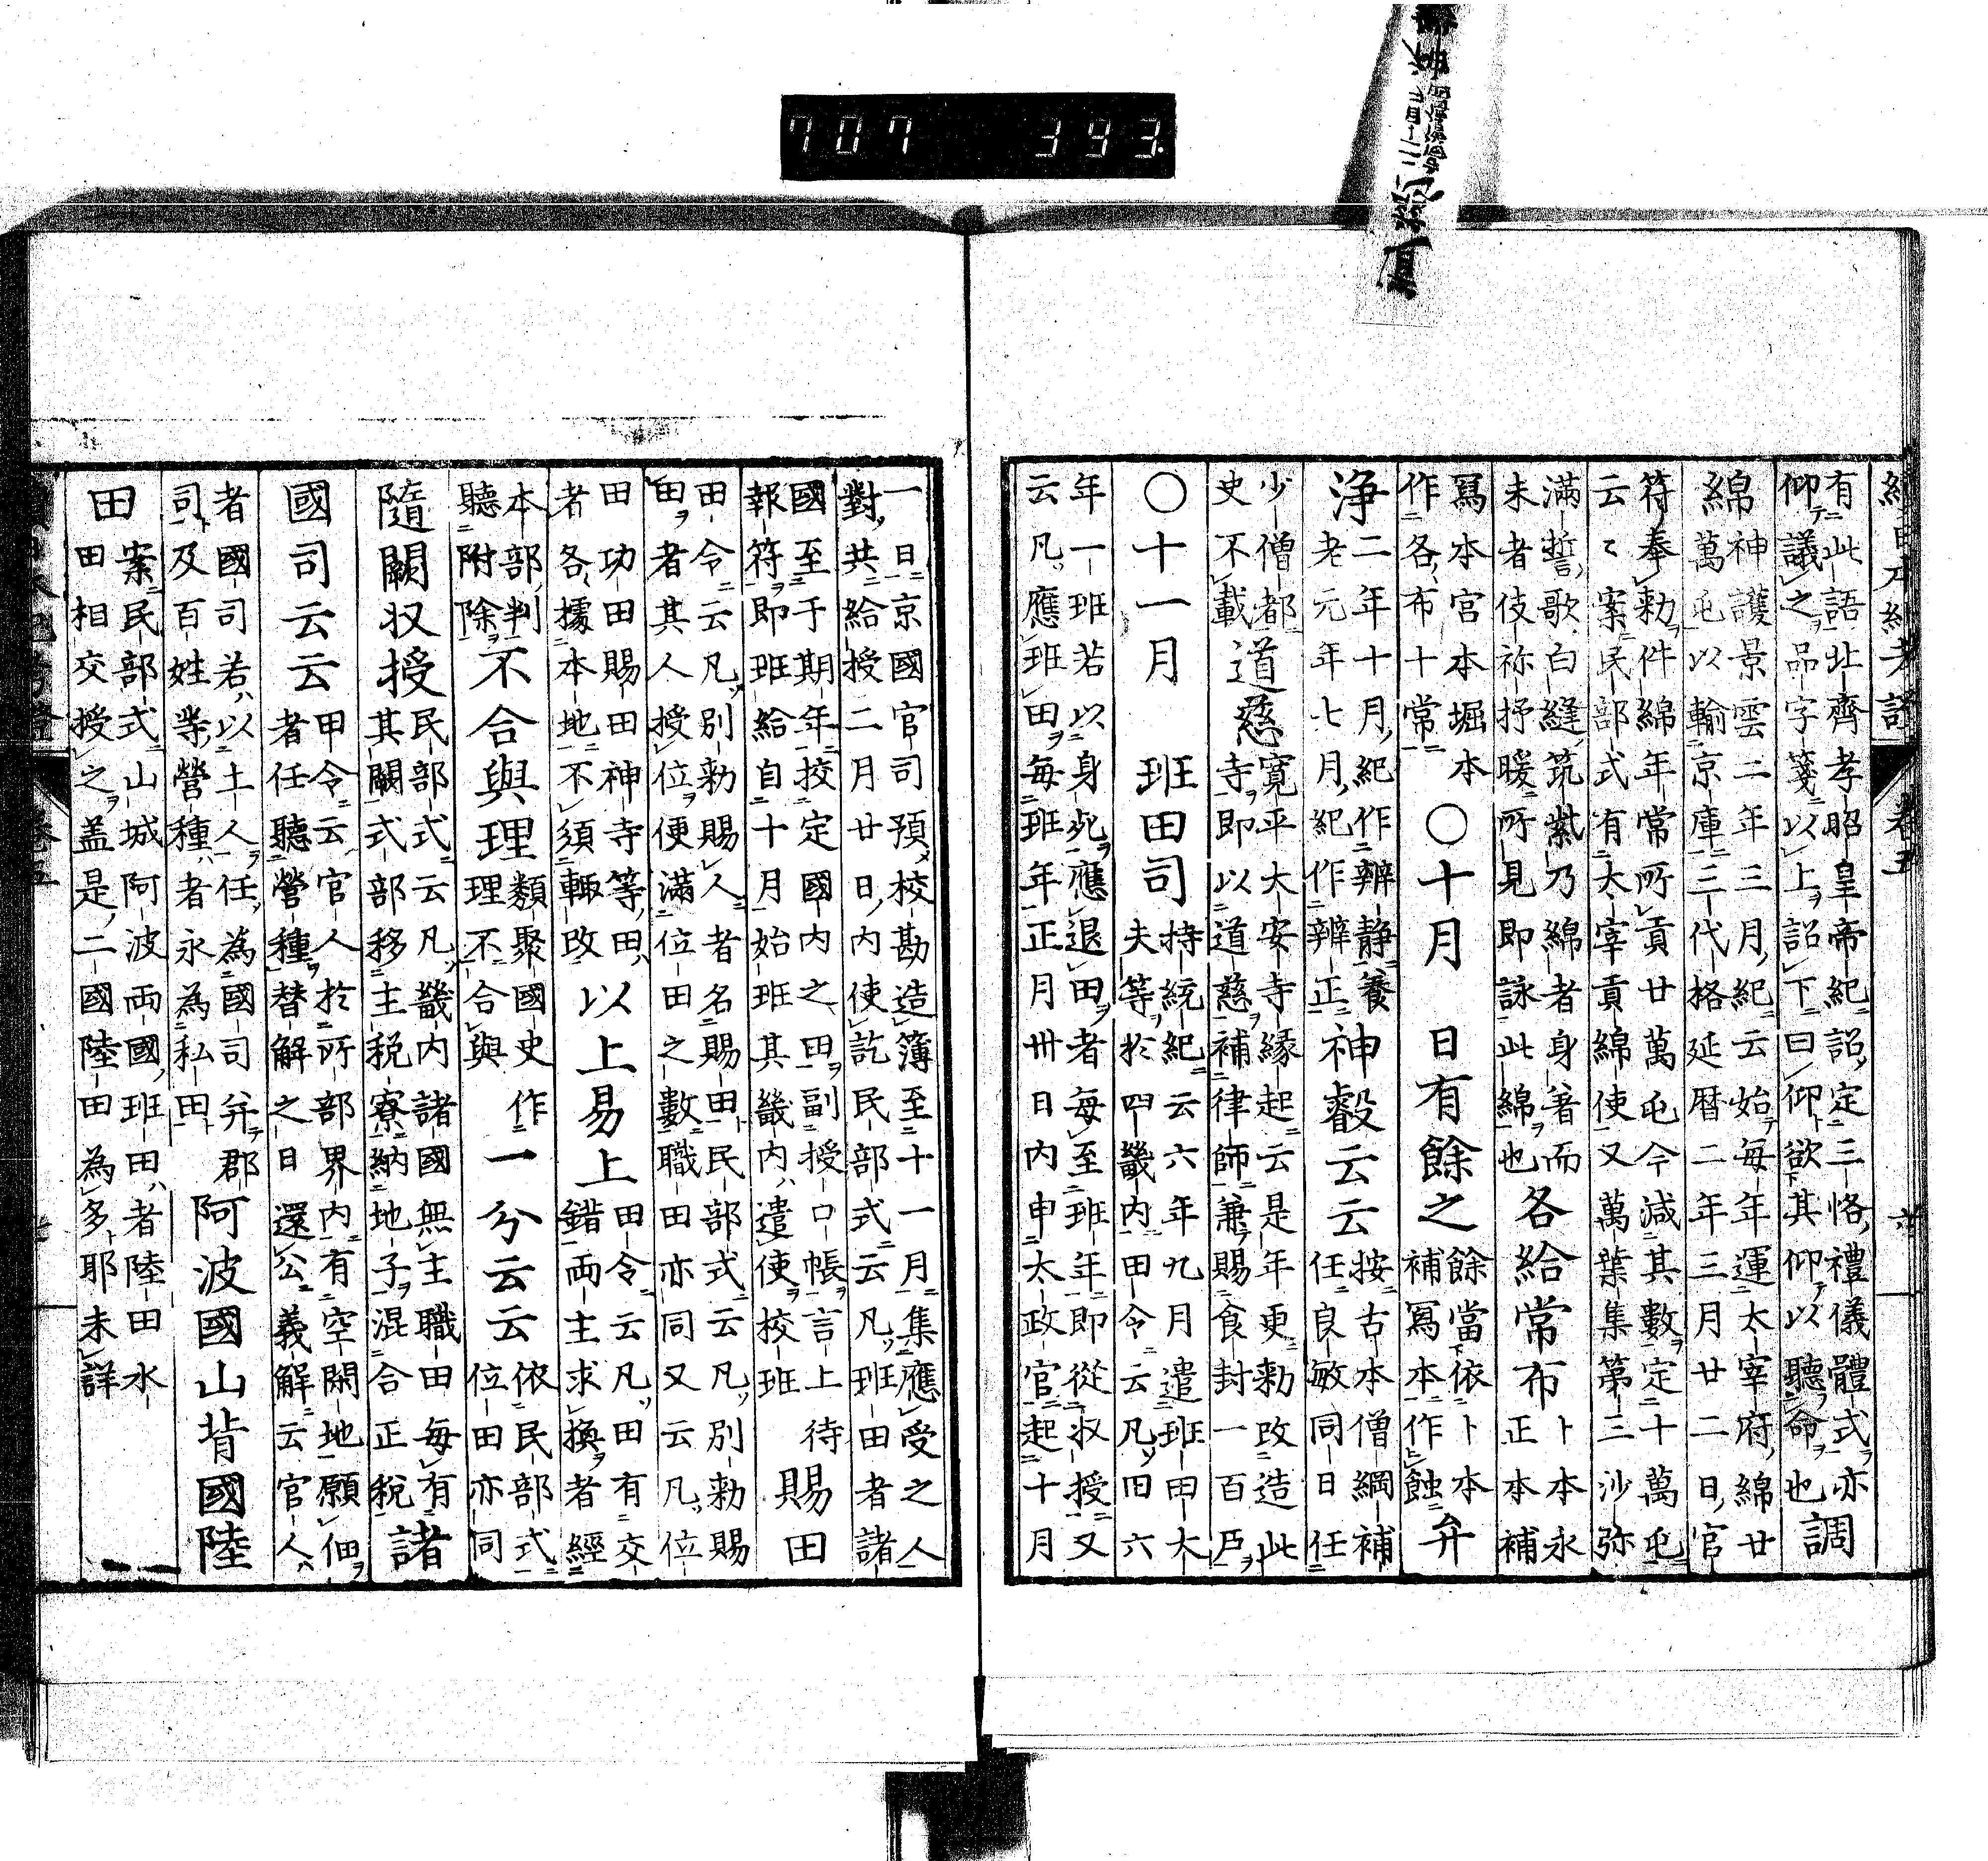 707 393.
續日本紀考證 卷五
有此語北齊孝昭皇帝紀詔定三恪禮儀體式亦
仰議之品字箋以上詔下曰仰欲其仰以聽命也 調
綿 神護景雲二年三月紀云始每年運太宰府綿廿
萬屯以輸京庫三代格延暦二年三月廿二日官
符奉勅件綿年常所貢廿萬屯今減其數定十萬屯
云々案民部式有大宰貢綿使又萬葉集第三沙弥
滿誓歌白縫筑紫乃綿者身著而
未者伎袮抒暖所見即詠此綿也 各給常布 卜本永
正本補
寫本宮本堀本
作各布十常 ○十月 日有餘之 餘當依卜本
補寫本作蝕 弁
浄 二年十月紀作辨静養
老元年七月紀作辨正 神叡云云 按古本僧綱補
任良敏同日任
少僧都
史不載 道慈 寬平大安寺緣起云是年更勅改造此
寺即以道慈補律師兼賜食封一百戸
○十一月 班田司 持統紀云六年九月遣班田大
夫等於四畿內田令云凡田六
年一班若以身死應退田者每至班年即從収授又
云凡應班田每班年正月卅日內申太政官起十月
一日京國官司預校勘造簿至十一月集應受之人
對共給授二月廿日內使訖民部式云凡班田者諸
國至于期年挍定國內之田副授口帳言上待
報符即班給自十月始班其畿內遣使校班 賜田
田令云凡別勅賜人者名賜田民部式云凡別勅賜
田者其人授位便滿位田之數職田亦同又云凡位
田功田賜田神寺等田
者各據本地不須輙改 以上易上 田令云凡田有交
錯兩主求換者經
本部判
聽附除 不合與理 類聚國史作
理不合與 一分云云 依民部式
位田亦同
隨闕収授 民部式云凡畿內諸國無主職田每有
其闕式部移主税寮納地子混合正税 諸
國司云云 甲令云官人於所部界內有空閑地願佃
者任聽營種替解之日還公義解云官人
者國司若以土人任為國司弁郡
司及百姓等營種者永為私田 阿波國山背國陸
田 案民部式山城阿波兩國班田者陸田水
田相交授之盖是二國陸田為多耶未詳